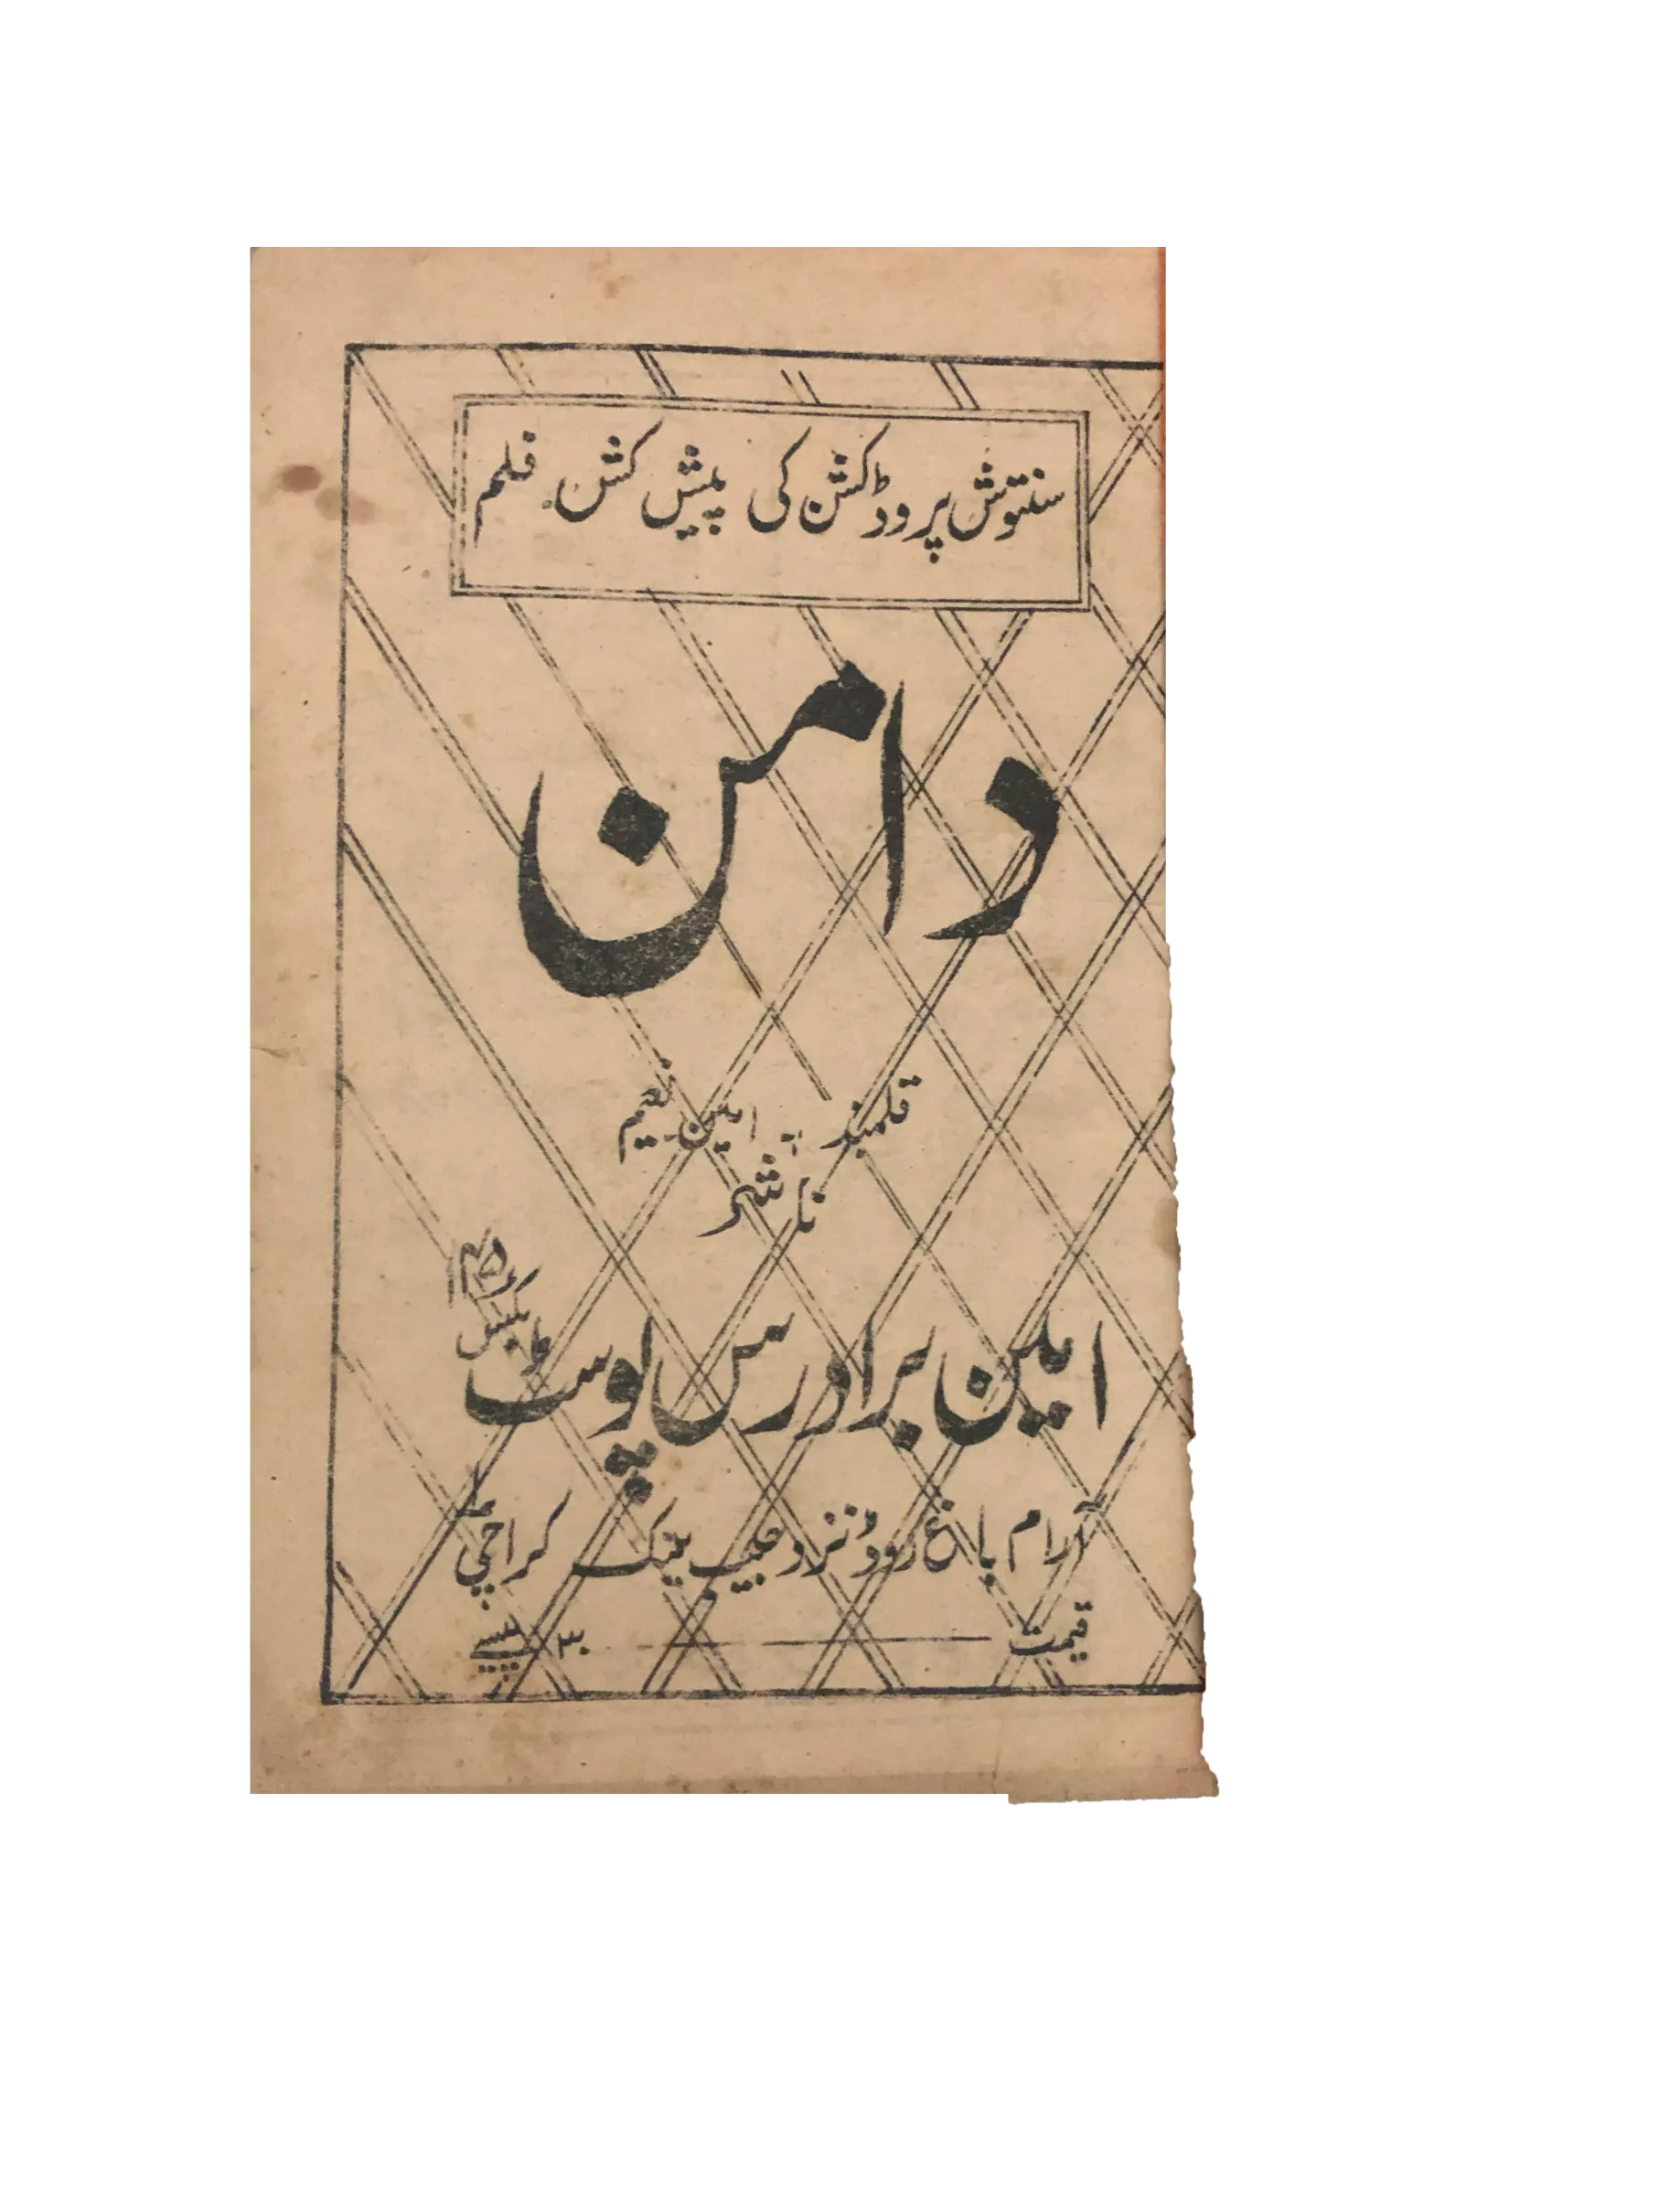 سنتوش پروڈکشن کی پیش کش۔ فلم
دامن
قلمبند :- امین نعیم
ناشر
امین برادرس پوسٹ بکس
آرام باغ روڈ نزد حبیب بینک کراچی
قیمت ۳۰ پیسے